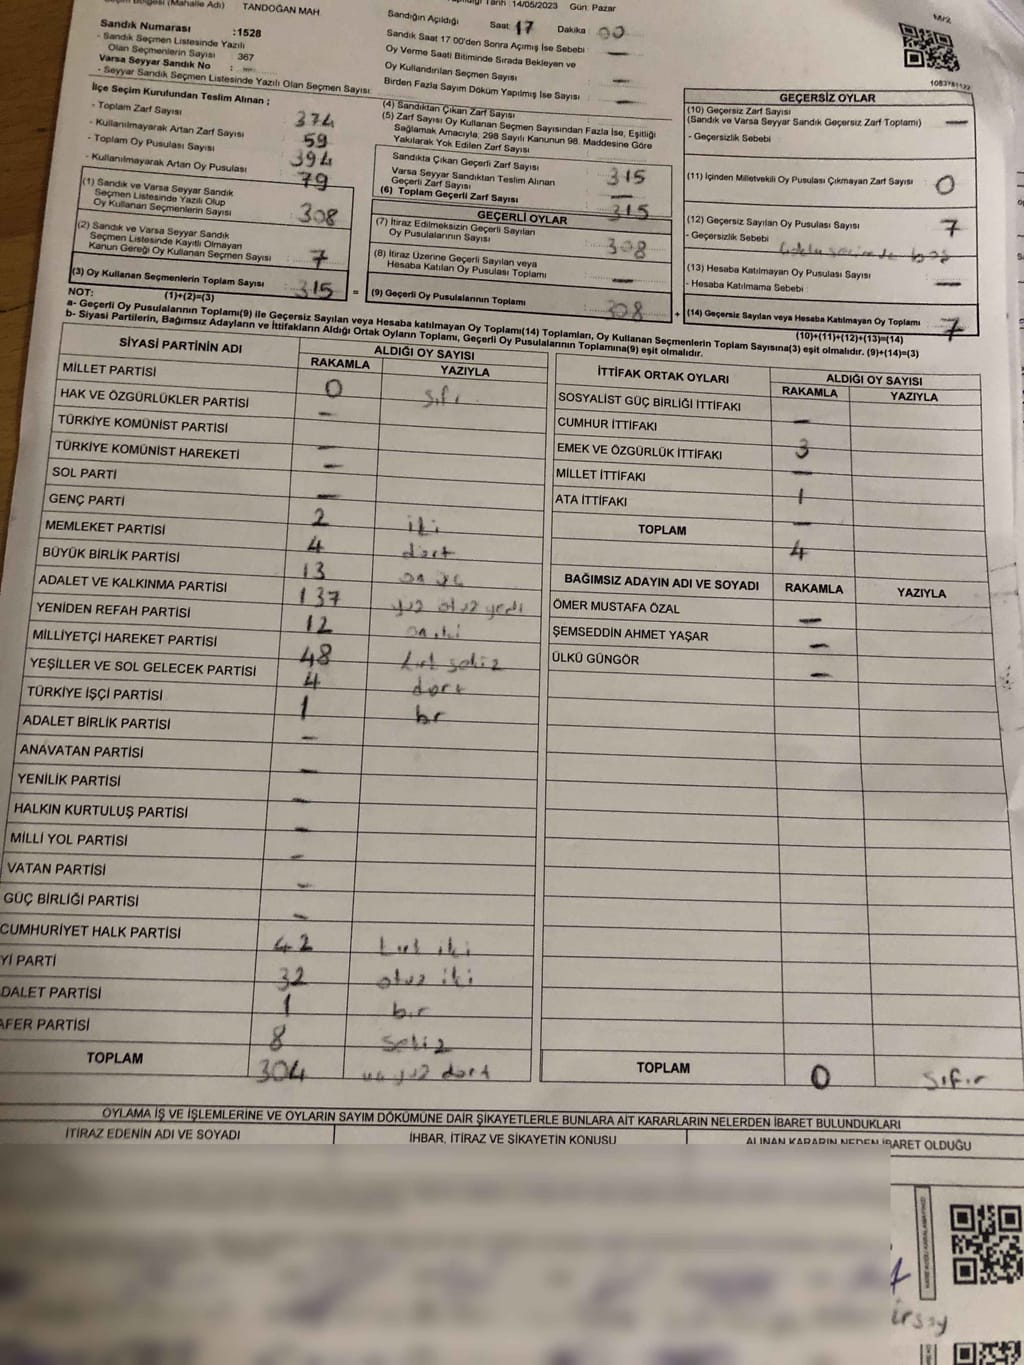 (Mahalle Adı) TANDOĞAN MAH
Tarih 14/05/2023 Gün: Pazar
Sandık Numarası :1528
- Sandık Seçmen Listesinde Yazılı
Olan Seçmenlerin Sayısı : 367
Varsa Seyyar Sandık No :
- Seyyar Sandık Seçmen Listesinde Yazılı Olan Seçmen Sayısı:
Sandığın Açıldığı Saat: 17 Dakika: 00
Sandık Saat 17:00'den Sonra Açımış İse Sebebi : —
Oy Verme Saati Bitiminde Sırada Bekleyen ve
Oy Kullandırılan Seçmen Sayısı : —
Birden Fazla Sayım Döküm Yapılmış İse Sayısı : —
M/2
1083781122
İlçe Seçim Kurulundan Teslim Alınan ;
- Toplam Zarf Sayısı : 374
- Kullanılmayarak Artan Zarf Sayısı : 59
- Toplam Oy Pusulası Sayısı : 394
- Kullanılmayarak Artan Oy Pusulası : 79
(1) Sandık ve Varsa Seyyar Sandık
Seçmen Listesinde Yazılı Olup
Oy Kullanan Seçmenlerin Sayısı : 308
(2) Sandık ve Varsa Seyyar Sandık
Seçmen Listesinde Kayıtlı Olmayan
Kanun Gereği Oy Kullanan Seçmen Sayısı : 7
(3) Oy Kullanan Seçmenlerin Toplam Sayısı : 315 =
(1)+(2)=(3)
(4) Sandıktan Çıkan Zarf Sayısı
(5) Zarf Sayısı Oy Kullanan Seçmen Sayısından Fazla İse, Eşitliği
Sağlamak Amacıyla, 298 Sayılı Kanunun 98. Maddesine Göre
Yakılarak Yok Edilen Zarf Sayısı
Sandıkta Çıkan Geçerli Zarf Sayısı : 315
Varsa Seyyar Sandıktan Teslim Alınan
Geçerli Zarf Sayısı : —
(6) Toplam Geçerli Zarf Sayısı : 315
GEÇERLİ OYLAR
(7) İtiraz Edilmeksizin Geçerli Sayılan
Oy Pusulalarının Sayısı : 308
(8) İtiraz Üzerine Geçerli Sayılan veya
Hesaba Katılan Oy Pusulası Toplamı : —
(9) Geçerli Oy Pusulalarının Toplamı : 308 +
GEÇERSİZ OYLAR
(10) Geçersiz Zarf Sayısı
(Sandık ve Varsa Seyyar Sandık Geçersiz Zarf Toplamı) : —
- Geçersizlik Sebebi :
(11) İçinden Milletvekili Oy Pusulası Çıkmayan Zarf Sayısı : 0
(12) Geçersiz Sayılan Oy Pusulası Sayısı : 7
- Geçersizlik Sebebi :
(13) Hesaba Katılmayan Oy Pusulası Sayısı : —
- Hesaba Katılmama Sebebi : —
(14) Geçersiz Sayılan veya Hesaba Katılmayan Oy Toplamı : 7
(10)+(11)+(12)+(13)=(14)
NOT:
a- Geçerli Oy Pusulalarının Toplamı(9) ile Geçersiz Sayılan veya Hesaba katılmayan Oy Toplamı(14) Toplamları, Oy Kullanan Seçmenlerin Toplam Sayısına(3) eşit olmalıdır. (9)+(14)=(3)
b- Siyasi Partilerin, Bağımsız Adayların ve İttifakların Aldığı Ortak Oyların Toplamı, Geçerli Oy Pusulalarının Toplamına(9) eşit olmalıdır.
SİYASİ PARTİNİN ADI ALDIĞI OY SAYISI
RAKAMLA YAZIYLA
MİLLET PARTİSİ 0 sıfı
HAK VE ÖZGÜRLÜKLER PARTİSİ —
TÜRKİYE KOMÜNİST PARTİSİ —
TÜRKİYE KOMÜNİST HAREKETİ —
SOL PARTİ —
GENÇ PARTİ 2 iki
MEMLEKET PARTİSİ 4 dört
BÜYÜK BİRLİK PARTİSİ 13 on üç
ADALET VE KALKINMA PARTİSİ 137 yüz otuz yedi
YENİDEN REFAH PARTİSİ 12 on iki
MİLLİYETÇİ HAREKET PARTİSİ 48 kırk sekiz
YEŞİLLER VE SOL GELECEK PARTİSİ 4 dört
TÜRKİYE İŞÇİ PARTİSİ 1 bir
ADALET BİRLİK PARTİSİ —
ANAVATAN PARTİSİ —
YENİLİK PARTİSİ —
HALKIN KURTULUŞ PARTİSİ —
MİLLİ YOL PARTİSİ —
VATAN PARTİSİ —
GÜÇ BİRLİĞİ PARTİSİ —
CUMHURİYET HALK PARTİSİ 42 kırk iki
Yİ PARTİ 32 otuz iki
DALET PARTİSİ 1 bir
AFER PARTİSİ 8 sekiz
TOPLAM 304 üç yüz dört
İTTİFAK ORTAK OYLARI ALDIĞI OY SAYISI
RAKAMLA YAZIYLA
SOSYALİST GÜÇ BİRLİĞİ İTTİFAKI —
CUMHUR İTTİFAKI 3
EMEK VE ÖZGÜRLÜK İTTİFAKI —
MİLLET İTTİFAKI 1
ATA İTTİFAKI —
TOPLAM 4
BAĞIMSIZ ADAYIN ADI VE SOYADI RAKAMLA YAZIYLA
ÖMER MUSTAFA ÖZAL —
ŞEMSEDDİN AHMET YAŞAR —
ÜLKÜ GÜNGÖR —
TOPLAM 0 sıfır
OYLAMA İŞ VE İŞLEMLERİNE VE OYLARIN SAYIM DÖKÜMÜNE DAİR ŞİKAYETLERLE BUNLARA AİT KARARLARIN NELERDEN İBARET BULUNDUKLARI
İTİRAZ EDENİN ADI VE SOYADI İHBAR, İTİRAZ VE ŞİKAYETİN KONUSU ALINAN KARARIN NEDEN İBARET OLDUĞU